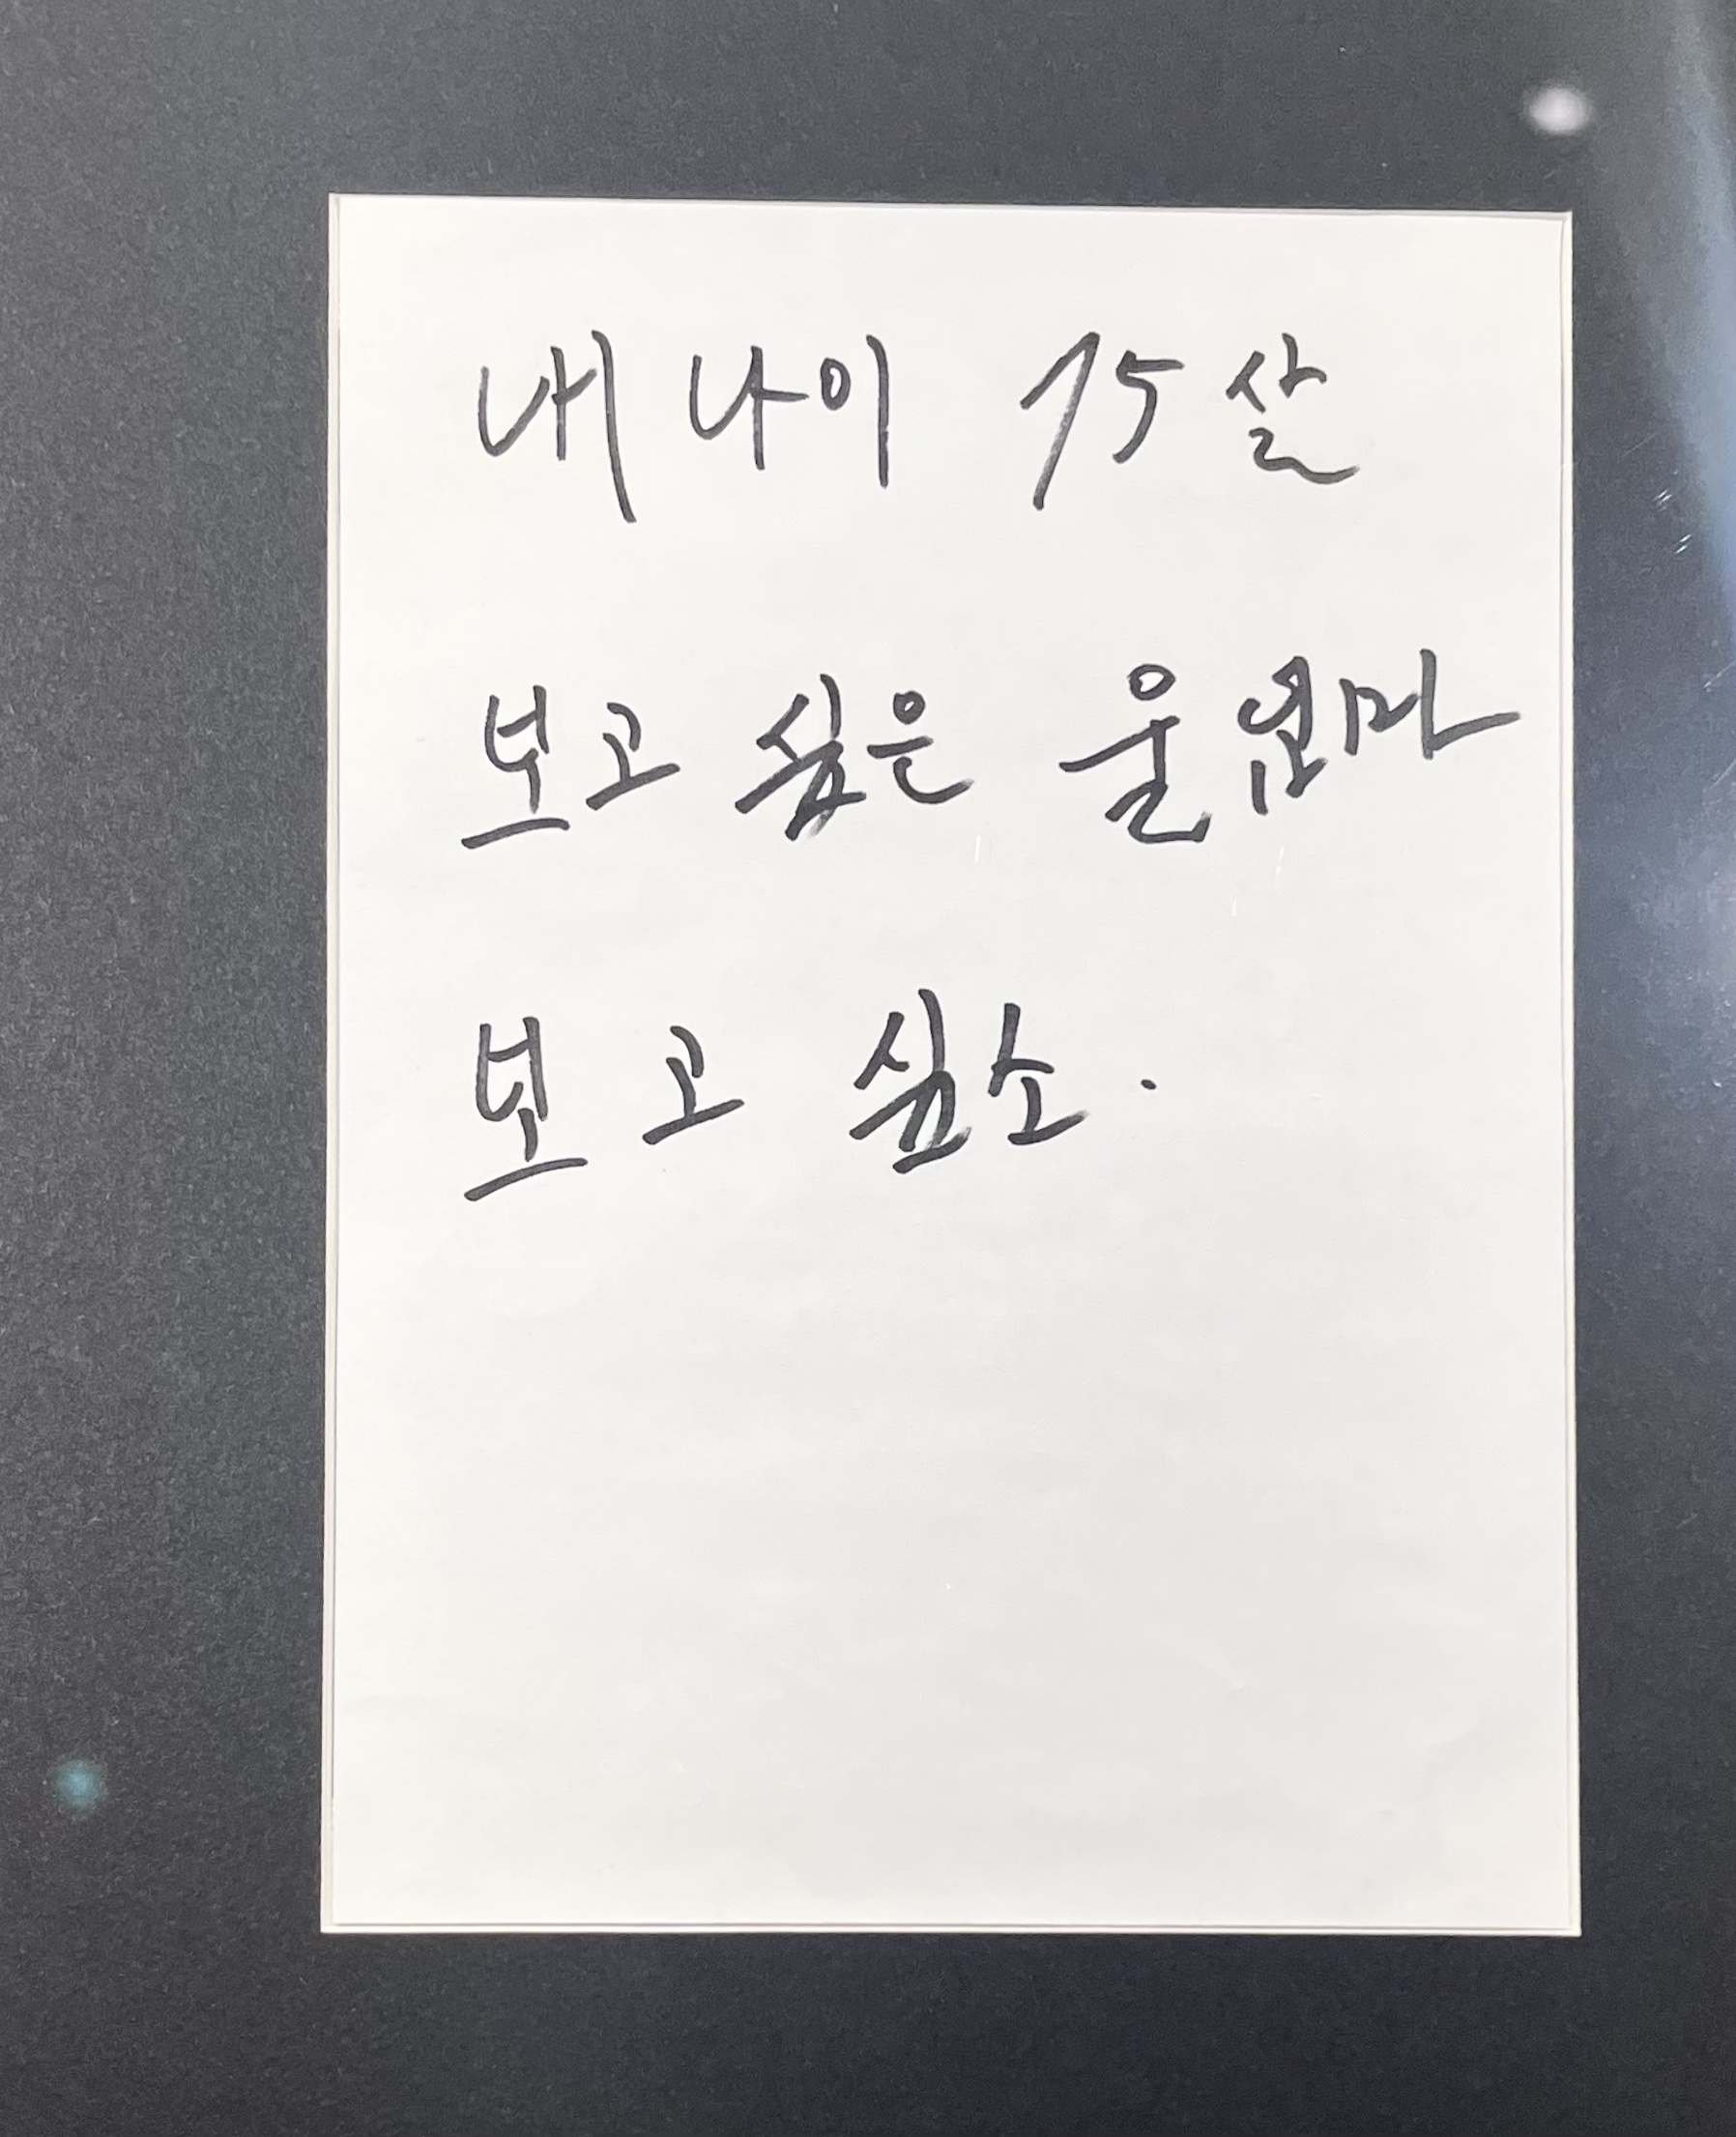 내 나이 15살
보고 싶은 울 엄마
보고 싶소.